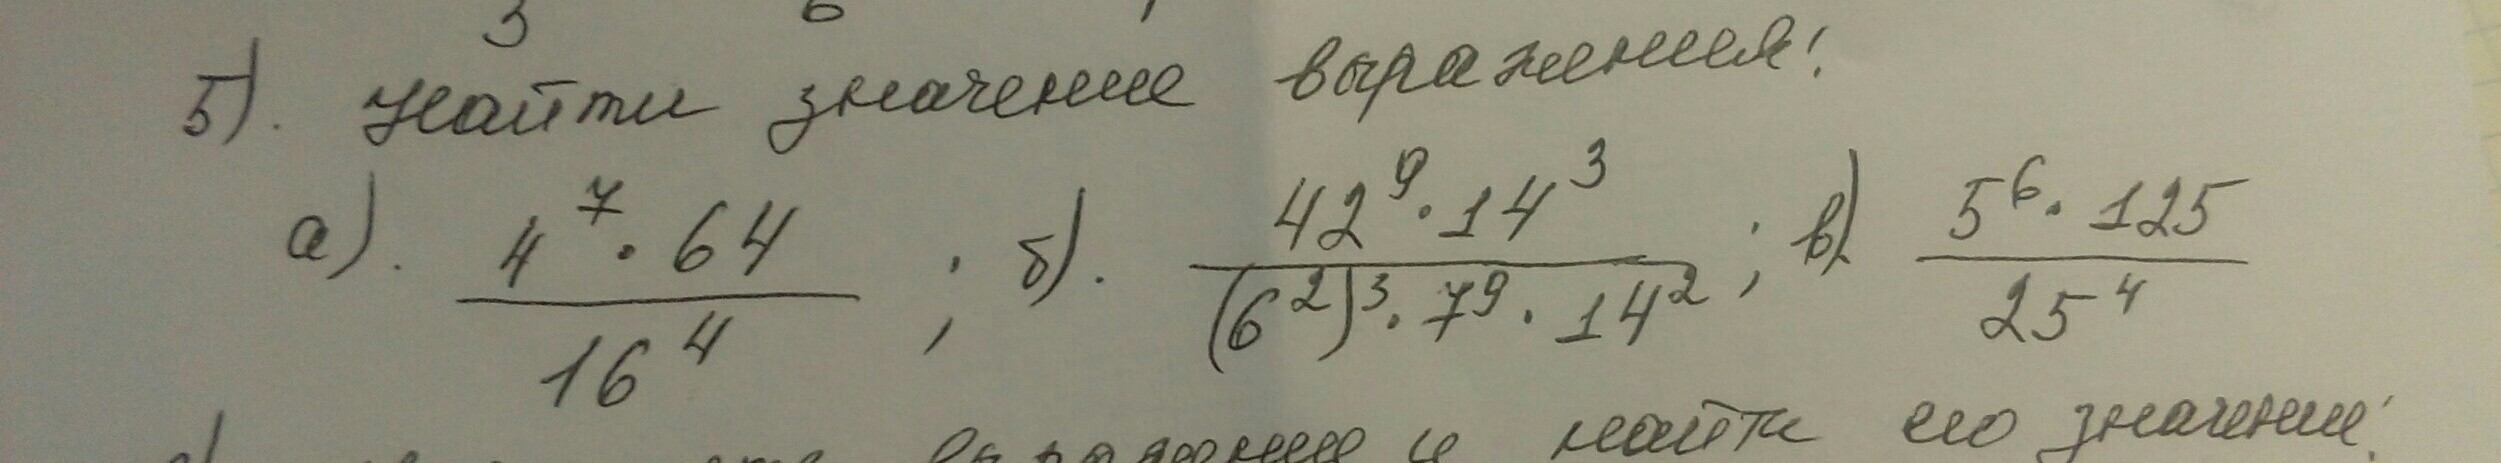 5). Найти значение выражения:
а). 4^7 · 64 / 16^4 ; б). 42^9 · 14^3 / (6^2)^3 · 7^9 · 14^2 ; в) 5^6 · 125 / 25^4
и найти его значение: